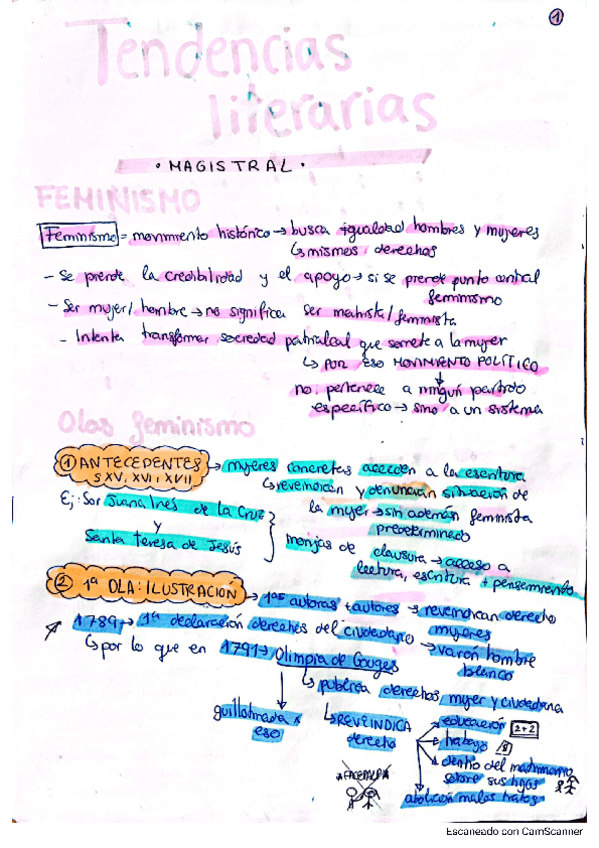 1
Tendencias
literarias
• MAGISTRAL •
FEMINISMO
Feminismo = movimiento histórico → busca igualdad hombres y mujeres
↳ mismos derechos
- Se pierde la credibilidad y el apoyo → si se pierde punto central
feminismo
- Ser mujer/hombre → no significa ser machista/feminista
- Intenta transformar sociedad patriarcal que somete a la mujer
↳ POR ESO MOVIMIENTO POLÍTICO
no pertenece a ningún partido
específico → sino a un sistema
Olas feminismo
① ANTECEDENTES → mujeres concretas acceden a la escritura
S XV, XVI i XVII
↳ reveindican y denuncian situación de
Ej: Sor Juana Inés de la Cruz
la mujer → sin ademán feminista
y
predeterminado
Santa Teresa de Jesús
monjas de clausura → acceso a
lectura, escritura + pensamiento
② 1ª OLA: ILUSTRACIÓN → 1as autoras + autores → reveindican derecho
mujeres
1789 → 1ª declaración derechos del ciudadano → varón hombre
blanco
↳ por lo que en 1791 → Olimpia de Gouges
↳ publica derechos mujer y ciudadana
guillotinada x
eso
↳ REVEINDICA
derecho
educación 2+2
trabajo
dentro del matrimonio
sobre sus hijos
abolición malos tratos
Escaneado con CamScanner